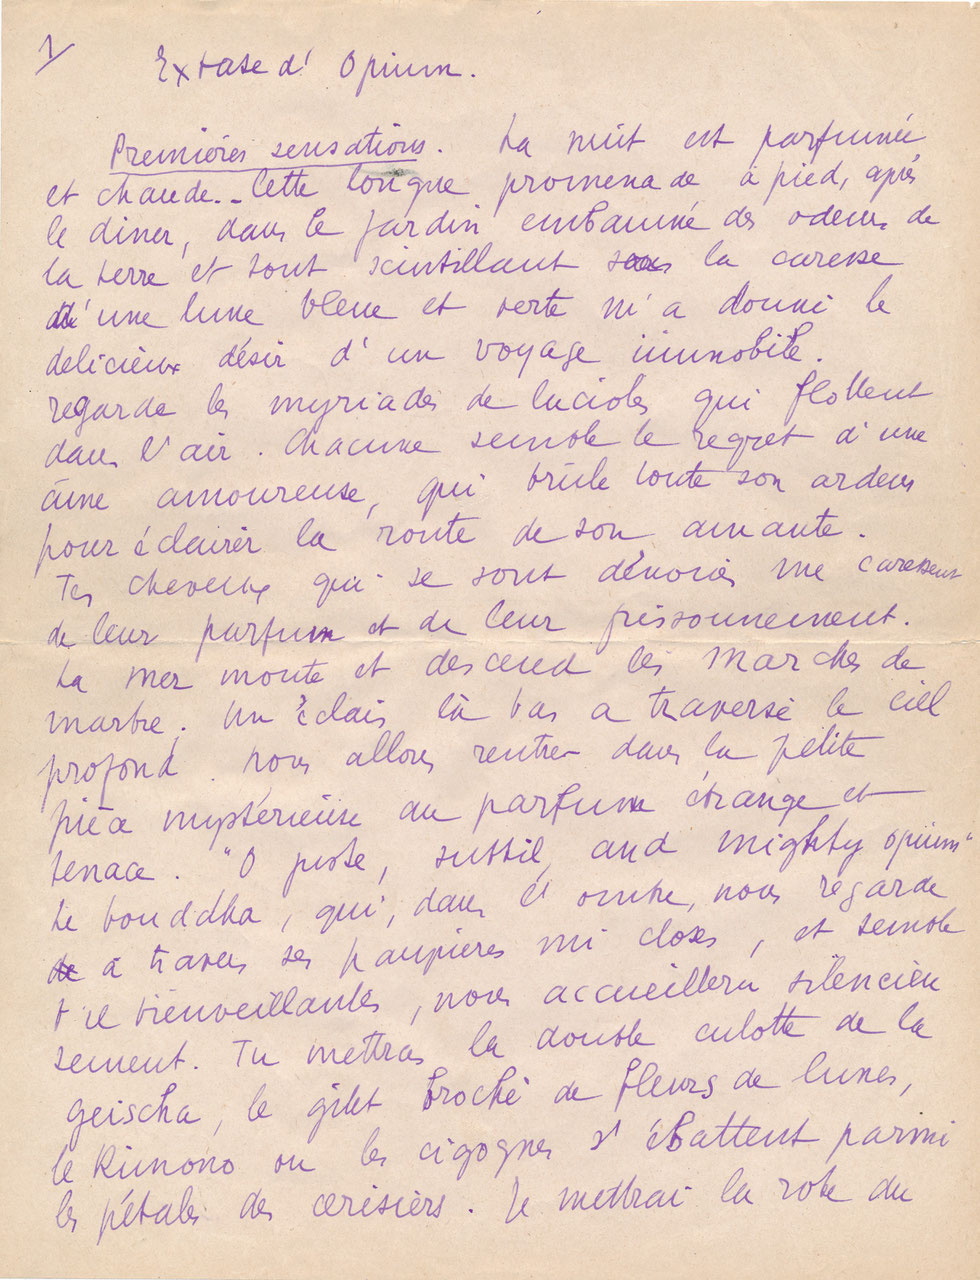 1/
Extase d' Opium.
Premières sensations. La nuit est parfumée
et chaude. Cette longue promenade à pied, après
le diner, dans le jardin embaumé des odeurs de
la terre et tout scintillant sous la caresse
d'une lune bleue et verte m'a donné le
delicieux désir d'un voyage immobile.
regarde les myriades de lucioles qui flottent
dans l'air. Chacune semble le regret d'une
âme amoureuse, qui brûle toute son ardeur
pour éclairer la route de son amante.
Tes cheveux qui se sont dénoués me caressent
de leur parfum et de leur frissonnement.
La mer monte et descend les marches de
marbre. Un éclair là bas a traversé le ciel
profond. nous allons rentrer dans la petite
pièce mystérieuse au parfum étrange et
tenace. "O juste, subtil, and mighty opium"
Le bouddha, qui, dans l'ombre, nous regarde
à travers ses paupières mi closes, et semble
t'il bienveillantes, nous accueillera silencieu
sement. Tu mettras la double culotte de la
geischa, le gilet broché de fleurs de lunes,
le Kimono ou les cigognes s'ébattent parmi
les pétales des cerisiers. Je mettrai la robe du